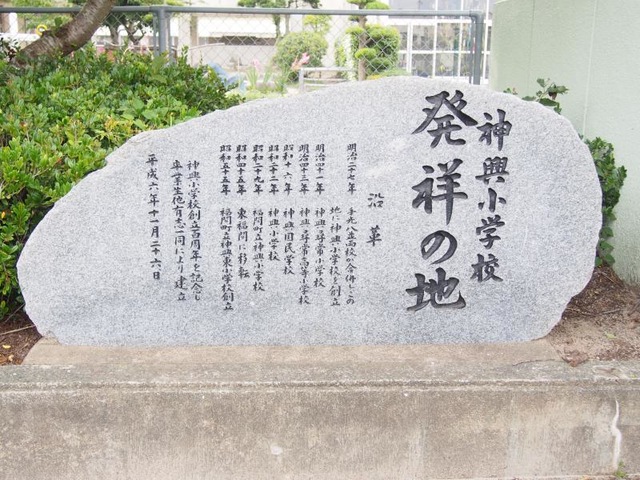 神興小学校
発祥の地
沿革
明治二十七年 手光八並両校が合併しこの
地に神興小学校を創立
明治四十一年 神興尋常小学校
明治四十三年 神興尋常高等小学校
昭和十六年 神興国民学校
昭和二十二年 神興小学校
昭和二十九年 福間町立神興小学校
昭和四十五年 東福間に移転
昭和五十五年 福間町立神興東小学校創立
神興小学校創立百周年を記念し
卒業生他有志一同により建立
平成六年十一月二十六日